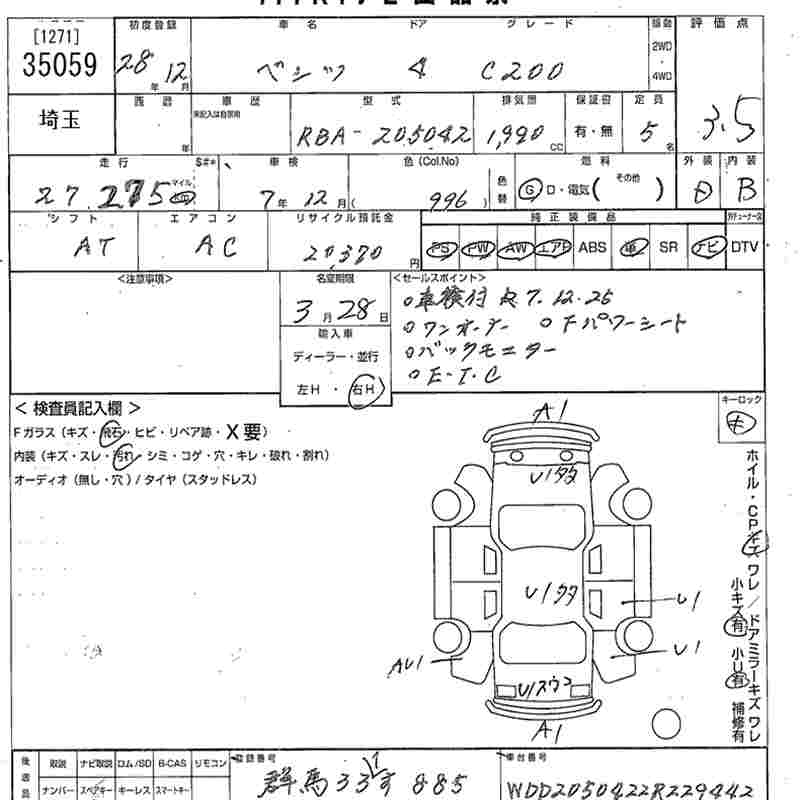 [1271]
35059
初度登録 車名 ドア グレード 駆動 評価点
28年 12月 ベンツ 4 C200 2WD 4WD
3.5
埼玉
西暦 車歴 型式 排気量 保証書 定員
年 未記入は自家用 RBA-205042 1,990 CC 有・無 5名
走行 $#* 車検 色(Col.No) 色替 燃料 外装 内装
27,275 マイル km 7年 12月 ( 996 ) G ロ・電気( その他 ) B
シフト エアコン リサイクル預託金 純正装備品
AT AC 20,370円 PS PW AW エアB ABS 革 SR ナビ DTV
<注意事項>
名変期限
3月28日
輸入車
ディーラー・並行
左H・右H
<セールスポイント>
○車検付 R7.12.25
○ワンオーナー ○Fパワーシート
○バックモニター
○E.T.C
<検査員記入欄>
Fガラス(キズ・飛石・ヒビ・リペア跡・X要)
内装(キズ・スレ・汚れ・シミ・コゲ・穴・キレ・破れ・割れ)
オーディオ(無し・穴)/タイヤ(スタッドレス)
キーロック
キ
A1
U1タタ
U1タタ
U1
U1
AU1
U1スウコ
A1
ホイル・CPキズ ワレ/ドアミラーキズ ワレ
小キズ有 小U有 補修有
後送品
取説 ナビ取説 ロム/SD B-CAS リモコン
ナンバー スペアキー キーレス スマートキー
登録番号
群馬 33 す 885
車台番号
WDD2050422R229442